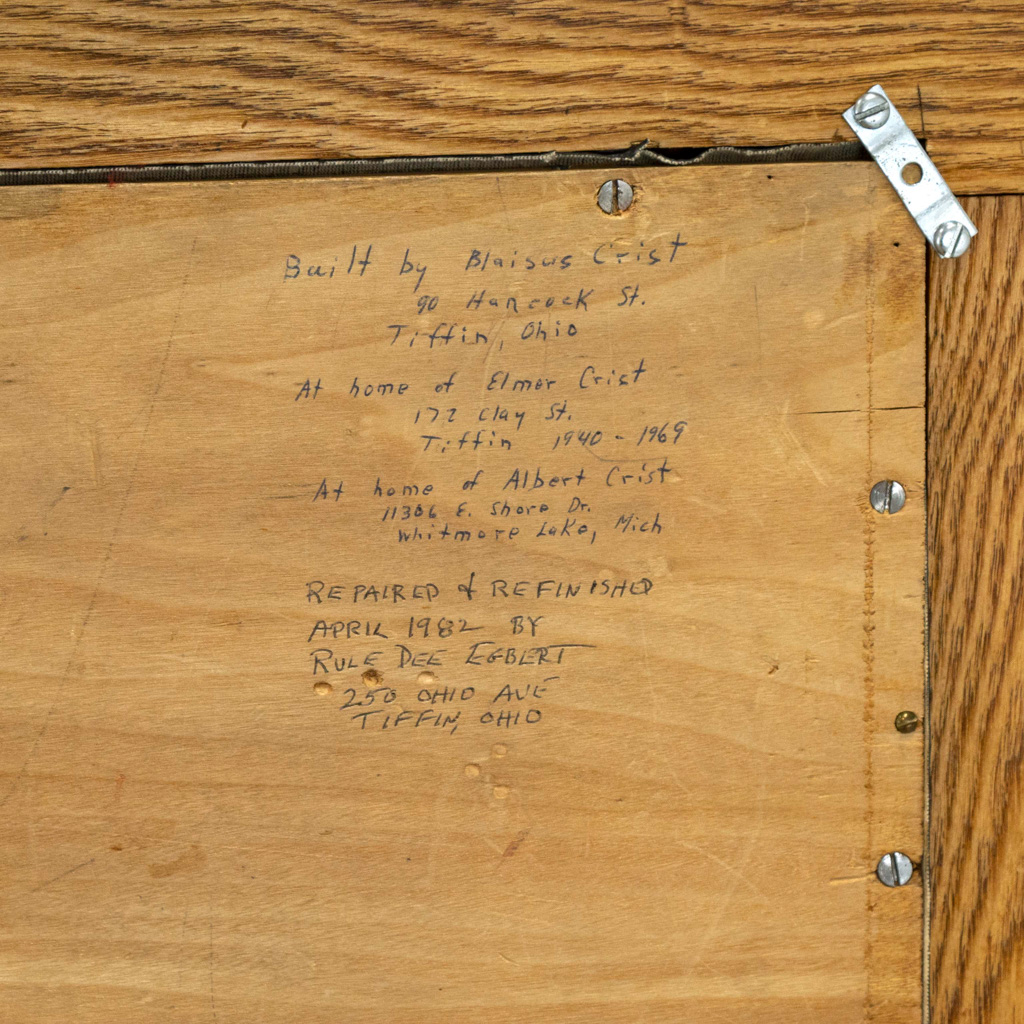 Built by Blaisus Crist
90 Hancock St.
Tiffin, Ohio
At home of Elmer Crist
172 Clay St.
Tiffin 1940 - 1969
At home of Albert Crist
11306 E. Shore Dr.
Whitmore Lake, Mich
REPAIRED & REFINISHED
APRIL 1982 BY
RULE DEE EGBERT
250 OHIO AVE
TIFFIN, OHIO